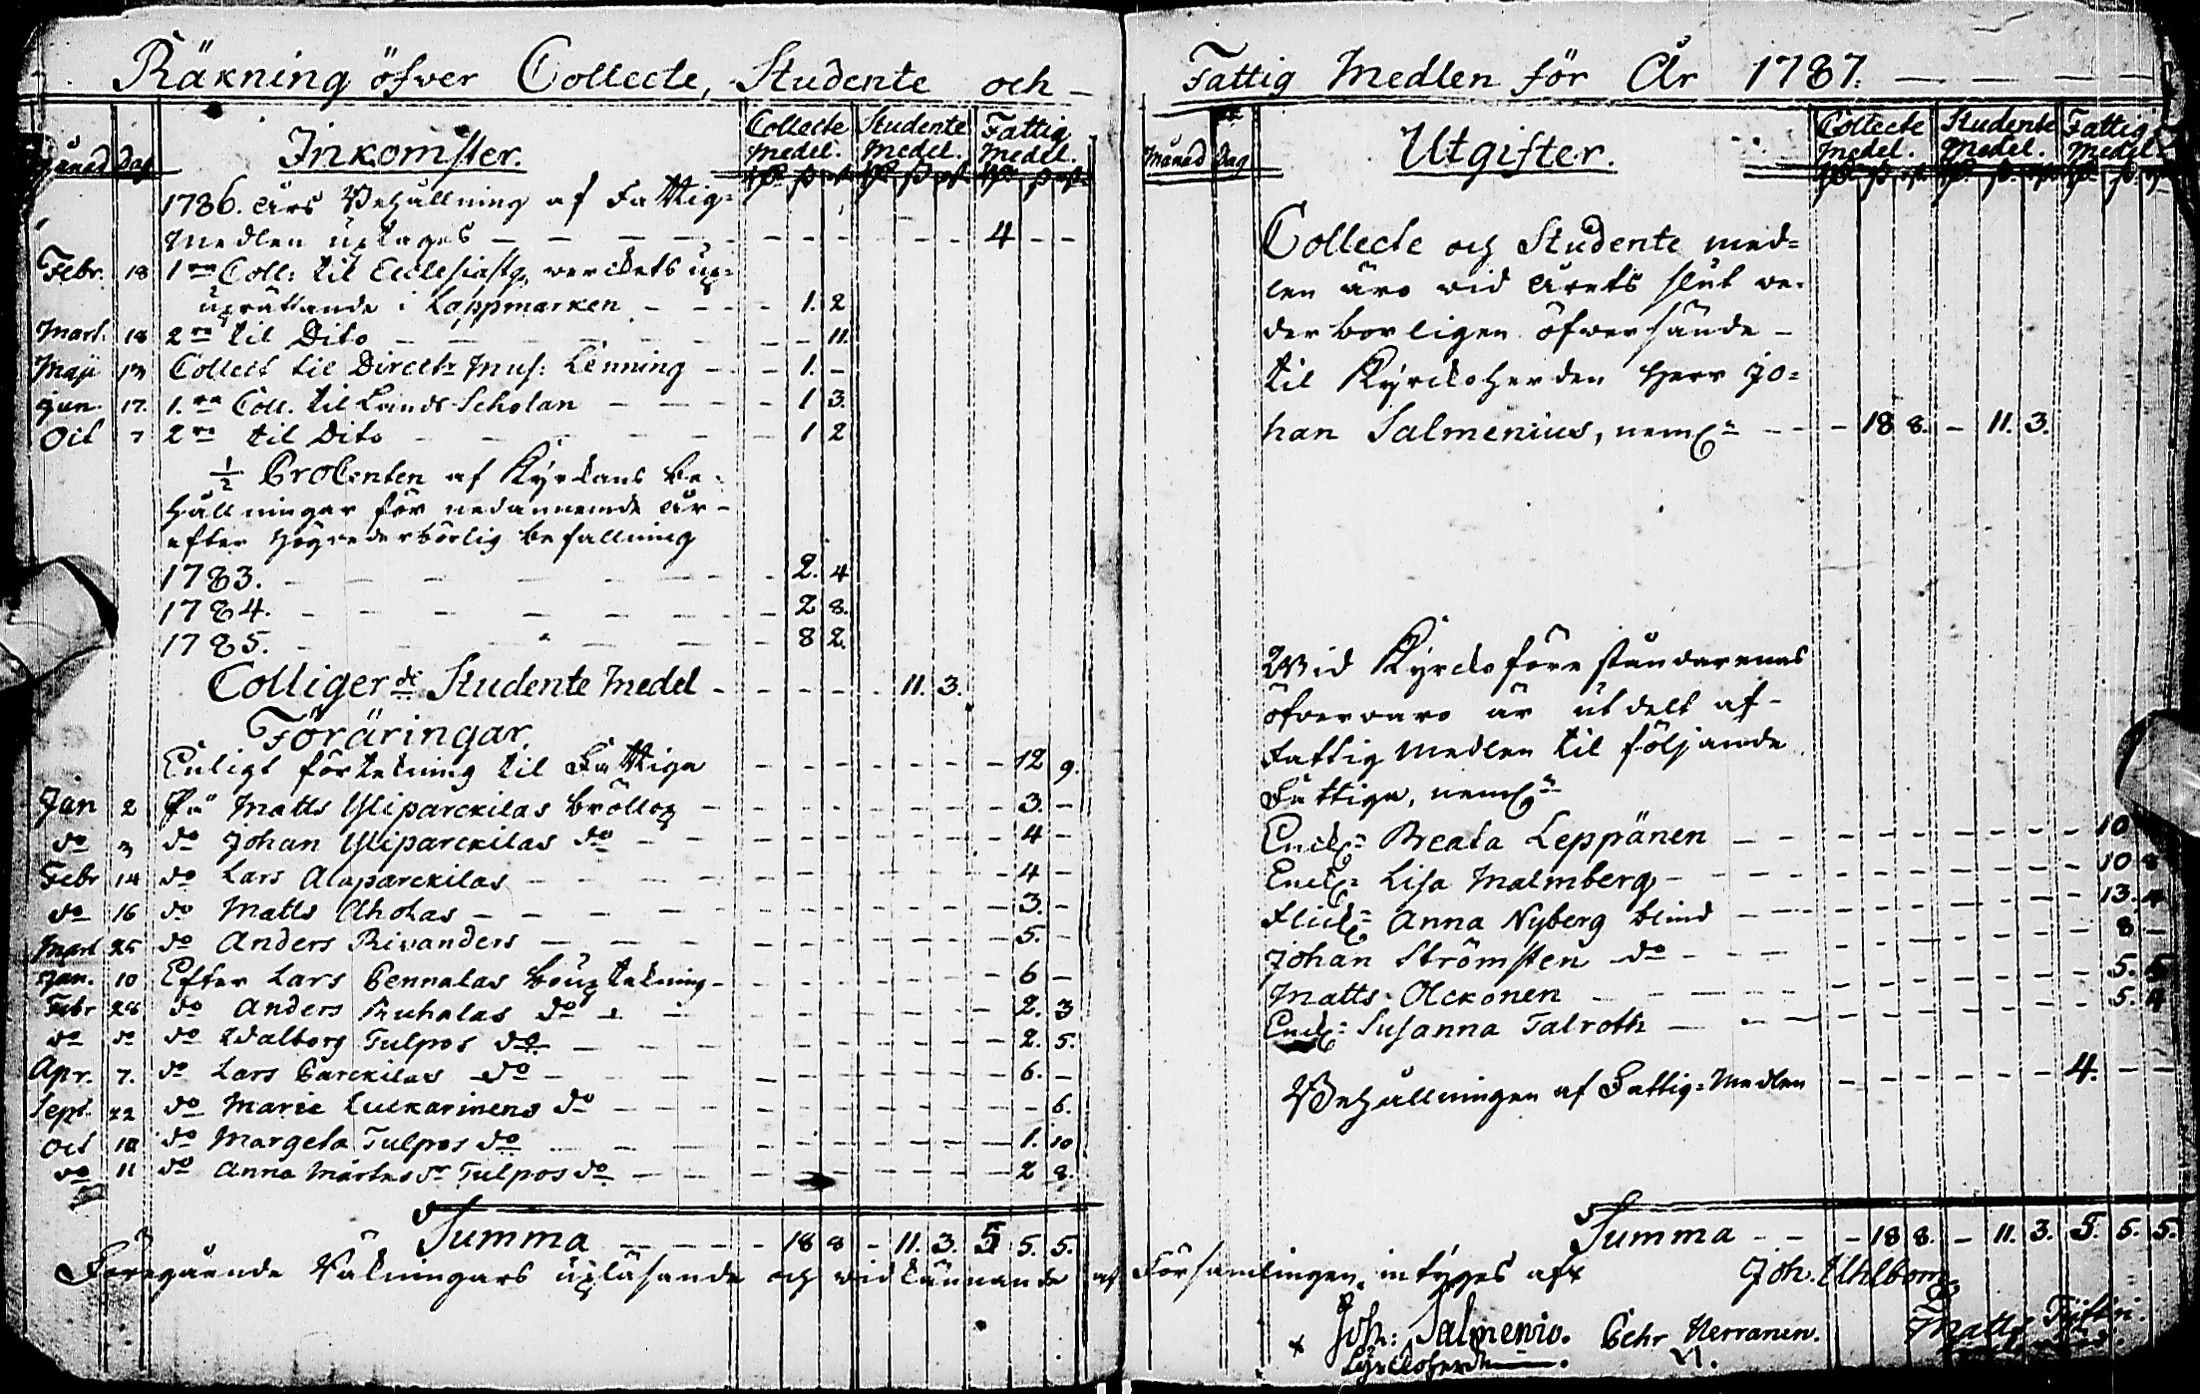 Räkning öfver Collecte, Studente och -
Månad Dag Inkomster. Collecte Medel. Studente Medel. Fattig Medel.
1786. års Behållning af Fattig-
Medlen uptages - - - 4 - -
Febr. 18 1ra Coll: til Ecclesiastq. verckets up-
uprättande i Lappmarken - - - 1. 2
Mart. 18 2ra til Dito - - - 11.
Maji 13 Collect til Direct: Mus: Lenning - - 1. -
Jun. 17. 1.ra Coll. til Lands Scholan - - - 1 3.
Oct 7 2ra til Dito - - - 1 2
1/2 Procenten af Kyrckans be-
hållningar för nedannemde år -
efter Högvederbörlig befallning
1783. - - - 2. 4
1784. - - - 2 8.
1785. - - - 8 2.
Colligerde Studente Medel - - - 11. 3.
Föräringar.
Enligt förtekning til Fattiga - - - 12 9.
Jan 2 På Matts Yliparckilas bröllop - - - 3. -
do 3 do Johan Yliparckilas do - - - 4 -
Febr 14 do Lars Alaparckilas - - - 4 -
do 16 do Matts Aholas - - - 3. -
Mart 25 do Anders Rivanders - - - 5. -
Jan. 10 Efter Lars Pennalas bouptekning - - - 6 -
Febr 28 do Anders Ruhalas do - - - 2. 3
do do do Walborg Tulpos do - - - 2. 5.
Apr. 7. do Lars Parckilas do - - - 6. -
Sept. 22 do Marie Luckarinens do - - - 6.
Oct 10 do Margeta Tulpos do - - - 1. 10
do 11 do Anna Mårtensdr Tulpos do - - - 2 8.
Summa - - - 18 8 - 11. 3. 5 5. 5.
Föregående Räkningars upläsande och vidkännande af
Fattig Medlen för År 1787. - - -
Månad Dag Utgifter. Collecte Medel. Studente Medel. Fattig Medel
Collecte och Studente med-
len äro vid årets slut ve-
derborligen öfversände -
til Kyrckoherden Herr Jo-
han Salmenius, neml: - - - 18 8. - 11. 3.
Wid Kyrckoföreståndarenas
öfvervaro är utdelt af -
Fattig Medlen til följande
Fattiga, neml:
Enck: Beata Leppänen - - - 10
Enck: Lisa Malmberg - - - 10 8
Flick: Anna Nyberg blind - - - 13. 4
Johan Strömsten do - - - 8 -
Matts Olckonen - - - 5. 5
Enck: Susanna Talroth - - - 5. 4
Behållningen af Fattig-Medlen - - - 4. - -
Summa - - - 18 8. - 11. 3. 5. 5. 5.
Församlingen, intyges af
Joh. Uhlbom
Joh: Salmenio. Pehr Herranen. Matts
Kyrckoherde